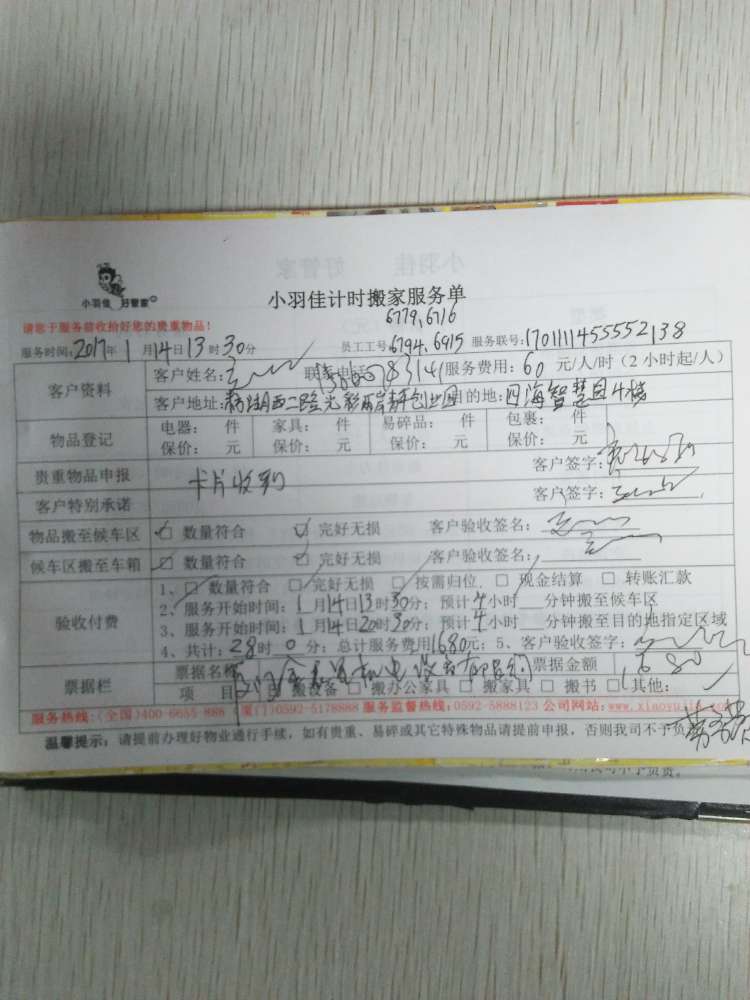 小羽佳 好管家
小羽佳计时搬家服务单
请您于服务前收拾好您的贵重物品!
6779,6716
服务时间:2017年1月14日13时30分 员工工号6794,6915 服务联号:170111455552138
客户资料 客户姓名: 联系电话 服务费用:60元/人/时(2小时起/人)
客户地址: 目的地:四海智慧园4栋
物品登记 电器: 件 家具: 件 易碎品: 件 包裹: 件
保价: 元 保价: 元 保价: 元 保价: 元
贵重物品申报 卡片收到 客户签字:
客户特别承诺 客户签字:
物品搬至候车区 ☑ 数量符合 ☑ 完好无损 客户验收签名:
候车区搬至车箱 ☑ 数量符合 ☑ 完好无损 客户验收签名:
验收付费 1、☑ 数量符合 ☑ 完好无损 ☑ 按需归位 ☑ 现金结算 □ 转账汇款
2、服务开始时间:1月14日13时30分;预计4小时 分钟搬至候车区
3、服务开始时间:1月14日20时30分;预计4小时 分钟搬至目的地指定区域
4、共计:28时0分;总计服务费用1680元;5、客户验收签字:
票据栏 票据名称 票据金额 1680
项目 搬设备 □ 搬办公家具 □ 搬家具 □ 搬书 □ 其他:
服务热线:(全国)400-6655-888 (厦门)0592-5178888 服务监督热线:0592-5888123 公司网站:www.xiaoyujia.com
温馨提示:请提前办理好物业通行手续,如有贵重、易碎或其它特殊物品请提前申报,否则我司不予负